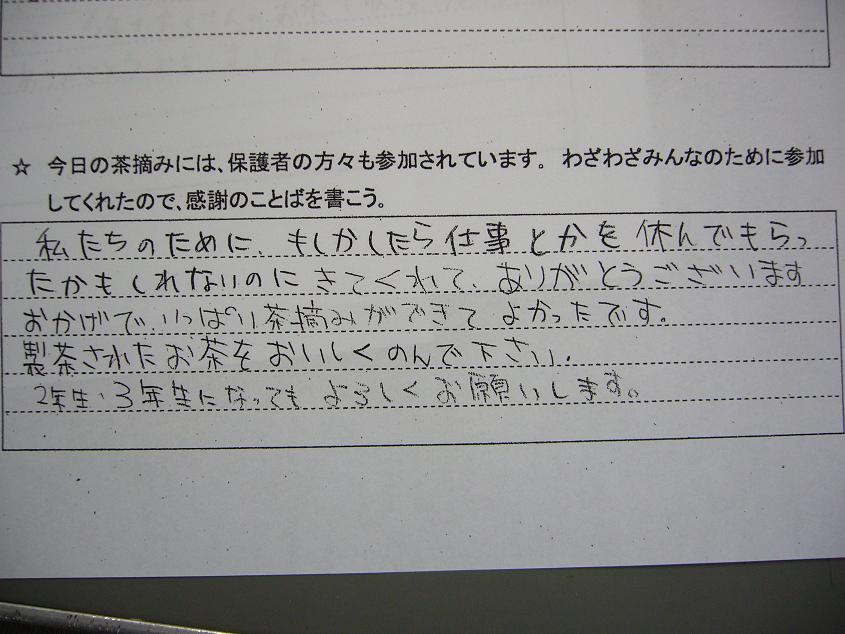 ☆ 今日の茶摘みには、保護者の方々も参加されています。 わざわざみんなのために参加
してくれたので、感謝のことばを書こう。
私たちのために、もしかしたら仕事とかを休んでもらっ
たかもしれないのにきてくれて、ありがとうございます
おかげで、いっぱい茶摘みができてよかったです。
製茶されたお茶をおいしくのんで下さい。
2年生・3年生になってもよろしくお願いします。